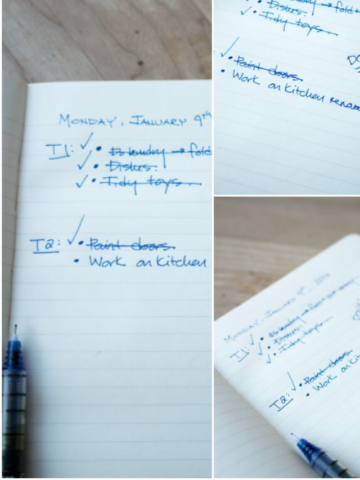 MONDAY, JANUARY 9th
T1: ✓ • Do laundry → fold
✓ • Dishes.
✓ • Tidy toys.
T2: ✓ • Paint doors.
• Work on Kitchen
• Dishes.
✓ • Tidy toys.
✓ • Paint doors.
• Work on Kitchen
MONDAY, JANUARY 9th
T1: ✓ • Do laundry →
✓ • Dishes.
✓ • Tidy toys.
T2: ✓ • Paint doors.
• Work on Ki